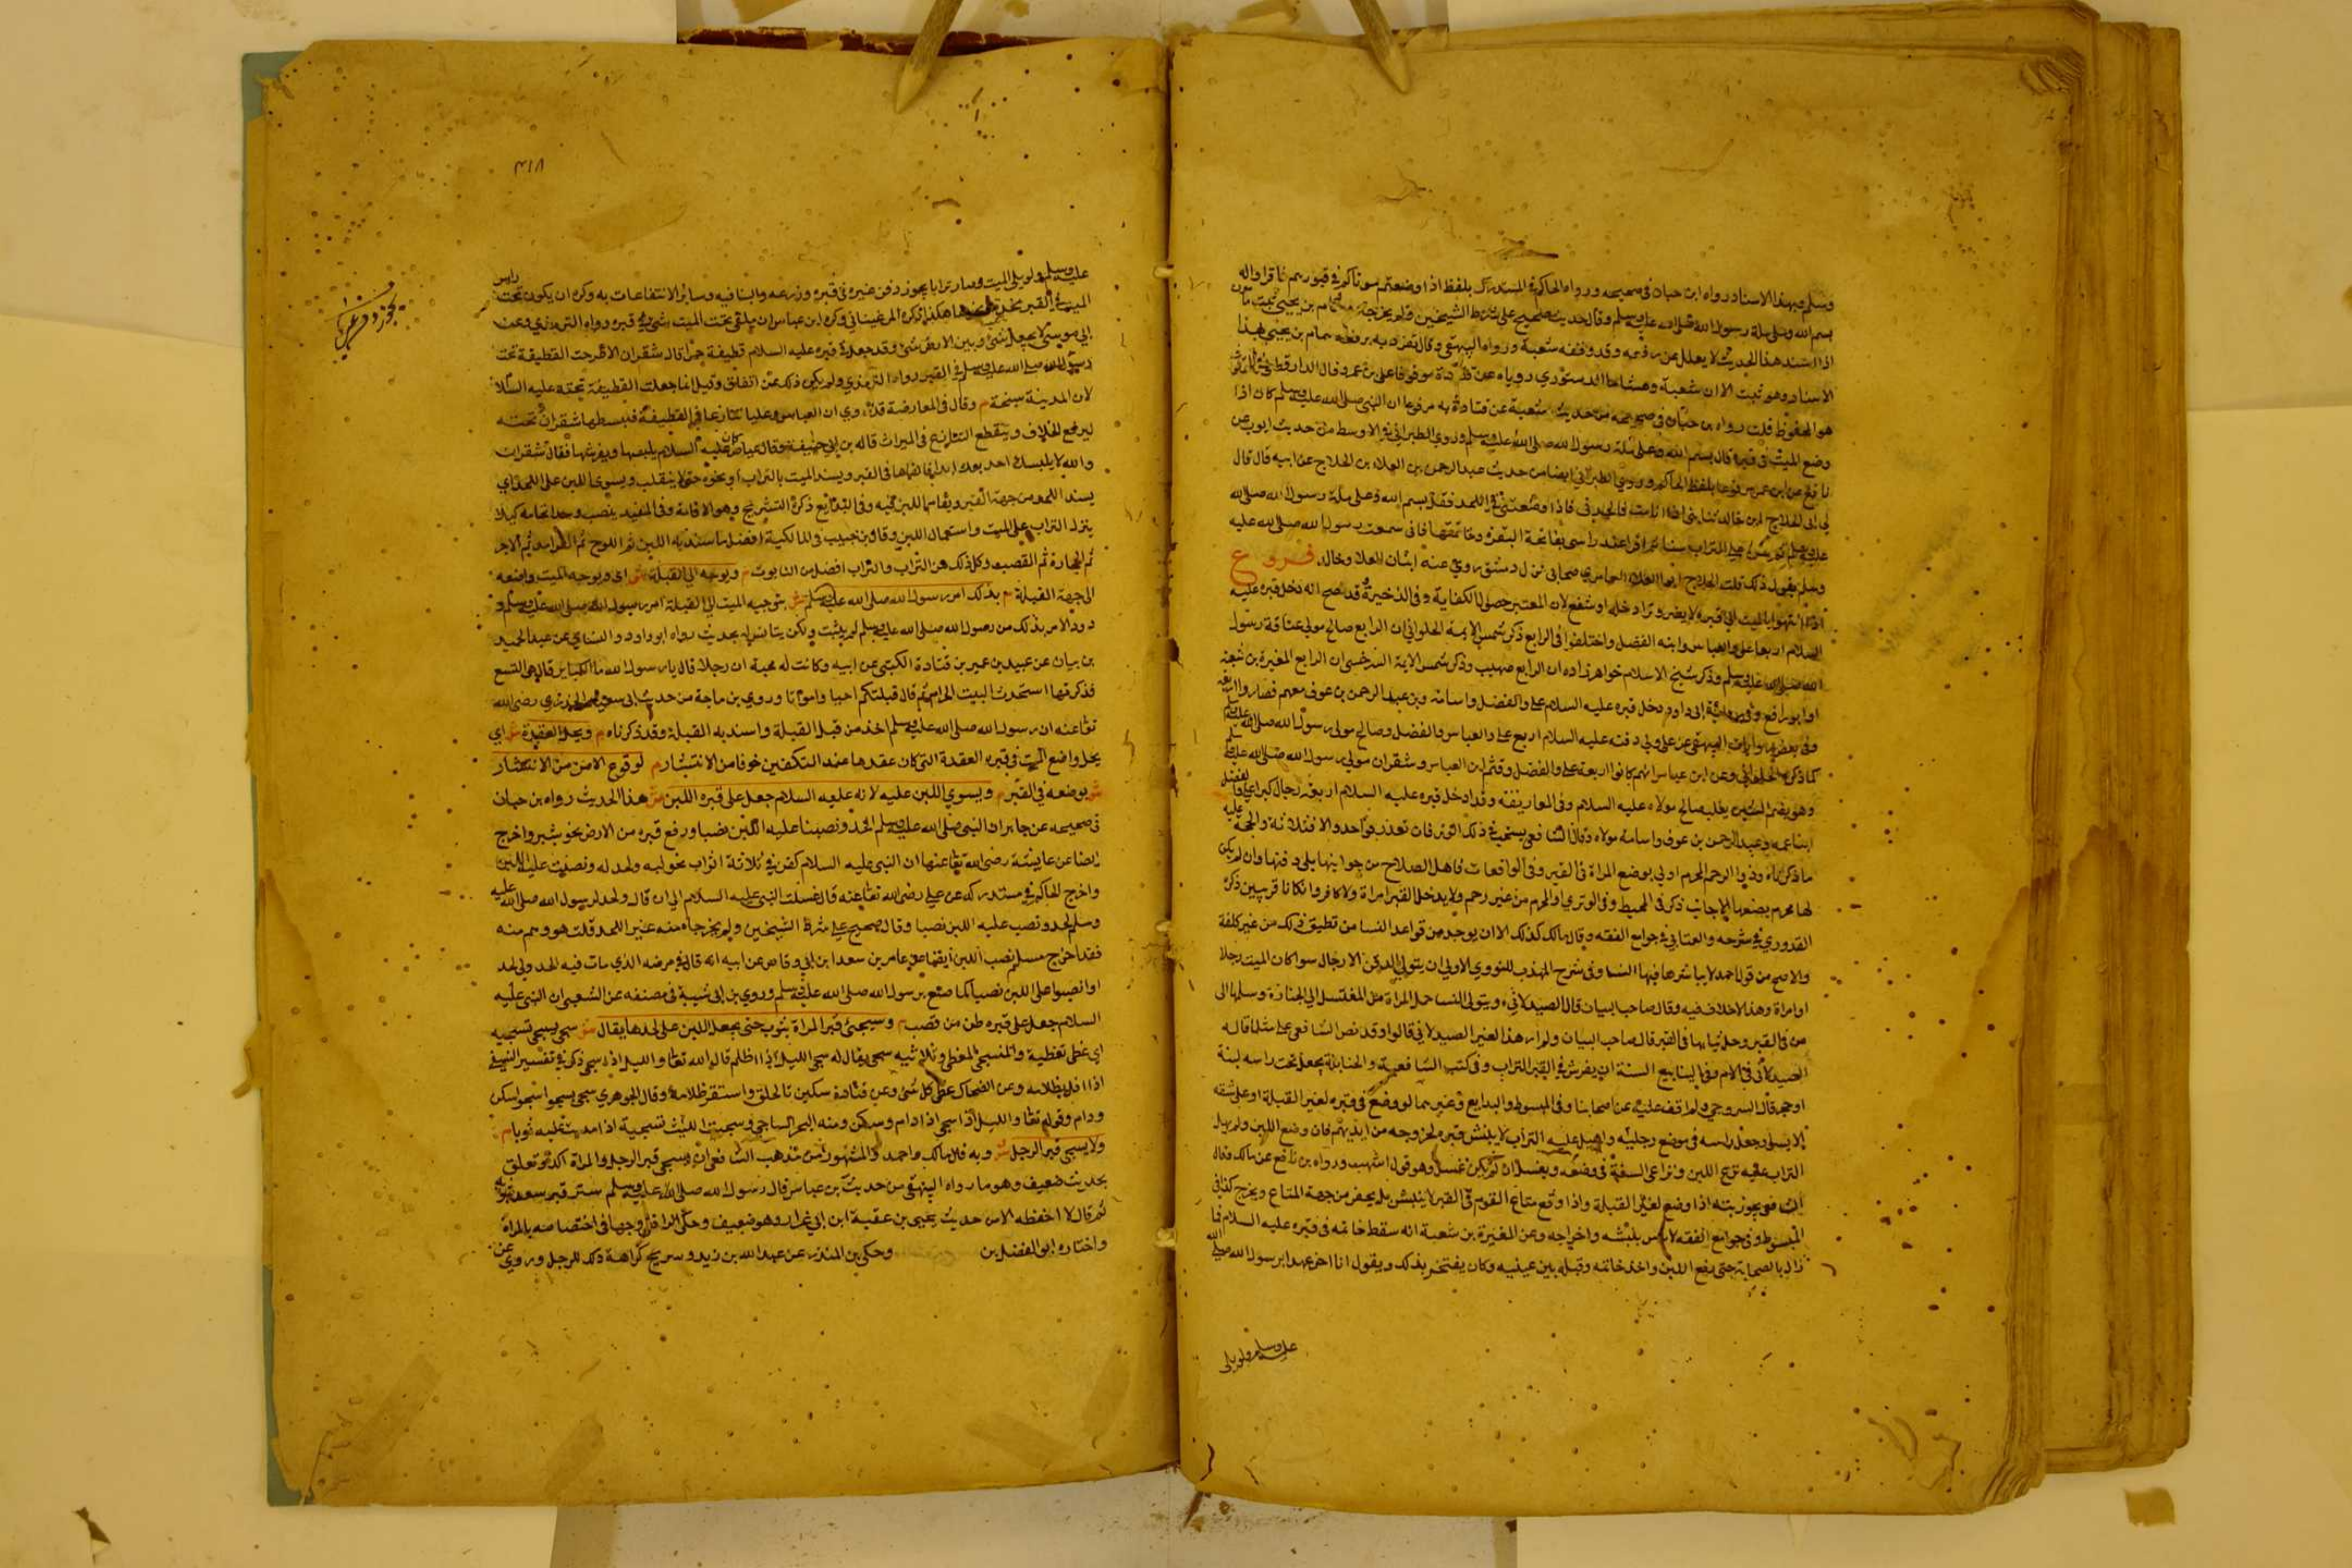 وسلم وبهذا الاسناد رواه ابن حبان في صحيحه ورواه الحاكم في المستدرك بلفظ اذا وضعتم موتاكم في قبورهم فاقراوا له
بسم الله وعلى ملة رسول الله صلى الله عليه وسلم وقال حديث صحيح على شرط الشيخين ولم يخرجاه وهمام بن يحيى ثبت مأمون
اذا اسند هذا الحديث لا يعلل بمن وقفه وقد وقفه شعبة ورواه البيهقي وقال تفرد به برفعه همام بن يحيى بهذا
الاسناد وهو ثبت الا ان شعبة وهشاما الدستوري روياه عن قتادة موقوفا على بن عمر وقال الدارقطني
هو المحفوظ قلت رواه بن حبان في صحيحه من حديث شعبة عن قتادة به مرفوعا ان النبي صلى الله عليه وسلم كان اذا
وضع الميت في قبره قال بسم الله وعلى ملة رسول الله صلى الله عليه وسلم وروى الطبراني في الاوسط من حديث ايوب عن
نافع عن ابن عمر مرفوعا بلفظ الحاكم وروى الطبراني ايضا من حديث عبد الرحمن بن العلاء بن اللجلاج عن ابيه قال قال
لي ابي اللجلاج ابن خالد يا بني اذا انا مت فالحد لي فاذا وضعتني في اللحد فقل بسم الله وعلى ملة رسول الله صلى الله
عليه وسلم ثم شن علي التراب شنا ثم اقرا عند راسي بفاتحة البقرة وخاتمتها فاني سمعت رسول الله صلى الله عليه
وسلم يقول ذلك قلت اللجلاج ابو العلاء العامري صحابي نزل دمشق روى عنه ابنان العلا وخالد فروع
اذا انتهوا بالميت الى قبره لا يضر وترا دخله او شفع لان المعتبر حصول الكفاية وفي الذخيرة قد صح انه دخل قبره عليه
السلام اربعا علي والعباس وابنه الفضل واختلفوا في الرابع ذكر شمس الايمة الحلواني ان الرابع صالح مولى عتاقة رسول
الله صلى الله عليه وسلم وذكر شيخ الاسلام خواهر زاده ان الرابع صهيب وذكر شمس الايمة السرخسي ان الرابع المغيرة بن شعبة
او ابو رافع وفي رواية ابي داود دخل قبره عليه السلام علي والفضل واسامة وبن عبد الرحمن بن عوف معهم فصاروا اربعة
وفي بعض روايات البيهقي عن علي ولي دفنه عليه السلام اربع علي والعباس والفضل وصالح مولى رسول الله صلى الله عليه وسلم
كما ذكره الحلواني وعن ابن عباس انهم كانوا اربعة علي والفضل وقثم ابن العباس وشقران مولى رسول الله صلى الله عليه وسلم
ابنا عمه وعبد الرحمن بن عوف واسامة مولاه وقال الشافعي يستحب في ذلك الوتر فان تعذر فواحد والا فثلاثة والحجة عليه
ما ذكرناه وذوا الرحم المحرم اولى بوضع المراة في القبر وفي الواقعات فاهل الصلاح من جيرانها يلي دفنها وان لم يكن
القدوري في شرحه والعتابي في جوامع الفقه وقال مالك كذلك الا ان يوجد من قواعد النسا من تطيق ذلك من غير كلفة
والاصح من قول احمد لا يباشرها فيها النسا وفي شرح المهذب للنووي الاولى ان يتولى الدفن الا رجال سوا كان الميت رجلا
او امراة وهذا لا خلاف فيه وقال صاحب البيان قال الصيدلاني ويتولى النسا حمل المراة من المغتسل الى الجنازة وسلمها الى
من في القبر وحل ثيابها في القبر قال صاحب البيان ولم ار هذا لغير الصيدلاني قالوا وقد نص الشافعي على مثل ما قاله
الصيدلاني في الام وفي الينابيع السنة ان يفرش في القبر التراب وفي كتب الشافعية والحنابلة يجعل تحت راسه لبنة
او حجر قال السروجي ولم اقف عليه عن اصحابنا وفي المبسوط والبدايع وغيرهما لو وضع في قبره لغير القبلة او على شقه
الايسر او جعل راسه في موضع رجليه واهيل عليه التراب لا ينبش قبره لخروجه من ايديهم فان وضع اللبن ولم يهل
التراب عليه نزع اللبن وتراعى السنة في وضعه ويغسل ان لم يكن غسل وهو قول اشهب ورواه بن نافع عن مالك وقال
الشافعي يجوز نبشه اذا وضع لغير القبلة واذا وقع متاع القوم في القبر لا ينبش بل يحفر من جهة المتاع ويخرج كذا في
المبسوط وفي جوامع الفقه لا باس بنبشه واخراجه وعن المغيرة بن شعبة انه سقط خاتمه في قبره عليه السلام فما
زال بالصحابة حتى رفع اللبن واخذ خاتمه وقبله بين عينيه وكان يفتخر بذلك ويقول انا اخر عهدا برسول الله صلى الله
عليه وسلم ولو بلي
٣١٨
عليه وسلم ولو بلى الميت وصار ترابا يجوز دفن غيره في قبره وزرعه والبنا فيه وسائر الانتفاعات به وكره ان يكون تحت راس
الميت في القبر مخدة هكذا ذكره المرغيناني وكره ابن عباس ان يلقى تحت الميت شيء في قبره رواه الترمذي وعن
ابي موسى لا يجعل بيني وبين الارض شئ وقد جعل في قبره عليه السلام قطيفة حمرا قال شقران انا طرحت القطيفة تحت
رسول الله صلى الله عليه وسلم في القبر رواه الترمذي ولم يكن ذلك عن اتفاق وقيل انما جعلت القطيفة تحته عليه السلام
لان المدينة سبخة م وقال في المعارضة قد روي ان العباس وعليا تنازعا في القطيفة فبسطها شقران تحته
ليرفع الخلاف وينقطع التنازع في الميراث قاله بن ابي خيثمة وقال عياض كان عليه السلام يلبسها ويفرشها فقال شقران
والله لا يلبسك احد بعده ابدا فالقاها في القبر ويسند الميت بالتراب او نحوه حتى لا ينقلب ويسوى اللبن على اللحد اي
يسند اللحد من جهة القبر ويقام اللبن فيه وفي البدايع ذكره التشريج وهو الاقامة وفي المفيد ينصب وحدانا به كيلا
ينزل التراب على الميت واستعمال اللبن وقال بن حبيب في المالكية افضل ما سند به اللبن ثم اللوح ثم القرامد ثم الاجر
ثم الحجارة ثم القصب وكل ذلك من التراب والتراب افضل من التابوت م ويوجه الى القبلة ش اي ويوجه الميت واضعه
الى جهة القبلة م بذلك امر رسول الله صلى الله عليه وسلم ش بتوجيه الميت الى القبلة امر رسول الله صلى الله عليه وسلم و
ورد الامر بذلك من رسول الله صلى الله عليه وسلم لم يثبت ولكن يتانس له بحديث رواه ابو داود والنساي عن عبد الحميد
بن سيان عن عبيد بن عمير بن قتادة الليثي عن ابيه وكانت له صحبة ان رجلا قال يا رسول الله ما الكباير قال هي التسع
فذكر منها استحلال البيت الحرام ثم قال قبلتكم احيا وامواتا وروى بن ماجة من حديث ابي سعيد الخدري رضي الله
تعالى عنه ان رسول الله صلى الله عليه وسلم اخذ من قبل القبلة واسند به القبلة وقد ذكرناه م ويحل العقدة ش اي
يحل واضع الميت في قبره العقدة التي كان عقدها عند التكفين خوفا من الانتشار م لوقوع الامن من الانتشار
ش بوضعه في القبر م ويسوي اللبن عليه لانه عليه السلام جعل على قبره اللبن ش هذا الحديث رواه بن حبان
في صحيحه عن جابر ان النبي صلى الله عليه وسلم الحد ونصبنا عليه اللبن نصبا ورفع قبره من الارض نحو شبر واخرج
ايضا عن عايشة رضي الله تعالى عنها ان النبي عليه السلام كفن في ثلاثة اثواب سحولية ولحد له ونصبت عليه اللبن
واخرج الحاكم في مستدركه عن علي رضي الله تعالى عنه قال غسلت النبي عليه السلام الى ان قال ولحد لرسول الله صلى الله عليه
وسلم لحد ونصب عليه اللبن نصبا وقال صحيح على شرط الشيخين ولم يخرجاه منه غير اللحد قلت هو وهم منه
فقد اخرج مسلم نصب اللبن ايضا عن عامر بن سعد ابن ابي وقاص عن ابيه انه قال في مرضه الذي مات فيه الحدوا لي لحدا
وانصبوا علي اللبن نصبا كما صنع برسول الله صلى الله عليه وسلم وروى بن ابي شيبة في مصنفه عن الشعبي ان النبي عليه
السلام جعل على قبره طن من قصب م ويسجى قبر المراة بثوب حتى يجعل اللبن على لحدها يقال ش سجى يسجي تسجية
اي غطى تغطية والمسجى المغطى وثلاثيه سجى يقال له سجى الليل اذا اظلم قال الله تعالى والليل اذا سجى ذكر في تفسير النسفي
اذا اقبل بظلامه وعن الضحاك غطى كل شئ وعن قتادة سكن بالخلق واستقر ظلامه وقال الجوهري سجى يسجوا سجوا سكن
ودام وقوله تعالى والليل اذا سجى اذا دام وسكن ومنه البحر الساجي وسجيت الميت تسجية اذا مديت عليه ثوبا م
ولا يسجى قبر الرجل ش وبه قال مالك واحمد والمشهور من مذهب الشافعي ان يسجى قبر الرجل والمراة اكد تعلق
بحديث ضعيف وهو ما رواه البيهقي من حديث بن عباس قال رسول الله صلى الله عليه وسلم ستر قبر سعد بثوبه
ثم قال لا احفظه الا من حديث يحيى بن عقبة ابن ابي العيزار وهو ضعيف وحكى الرافعي وجها في اختصاصه بالمراة
واختاره ابو الفضل بن وحكى بن المنذر عن عبد الله بن زيد وسريح كراهة ذلك للرجل وروي عن